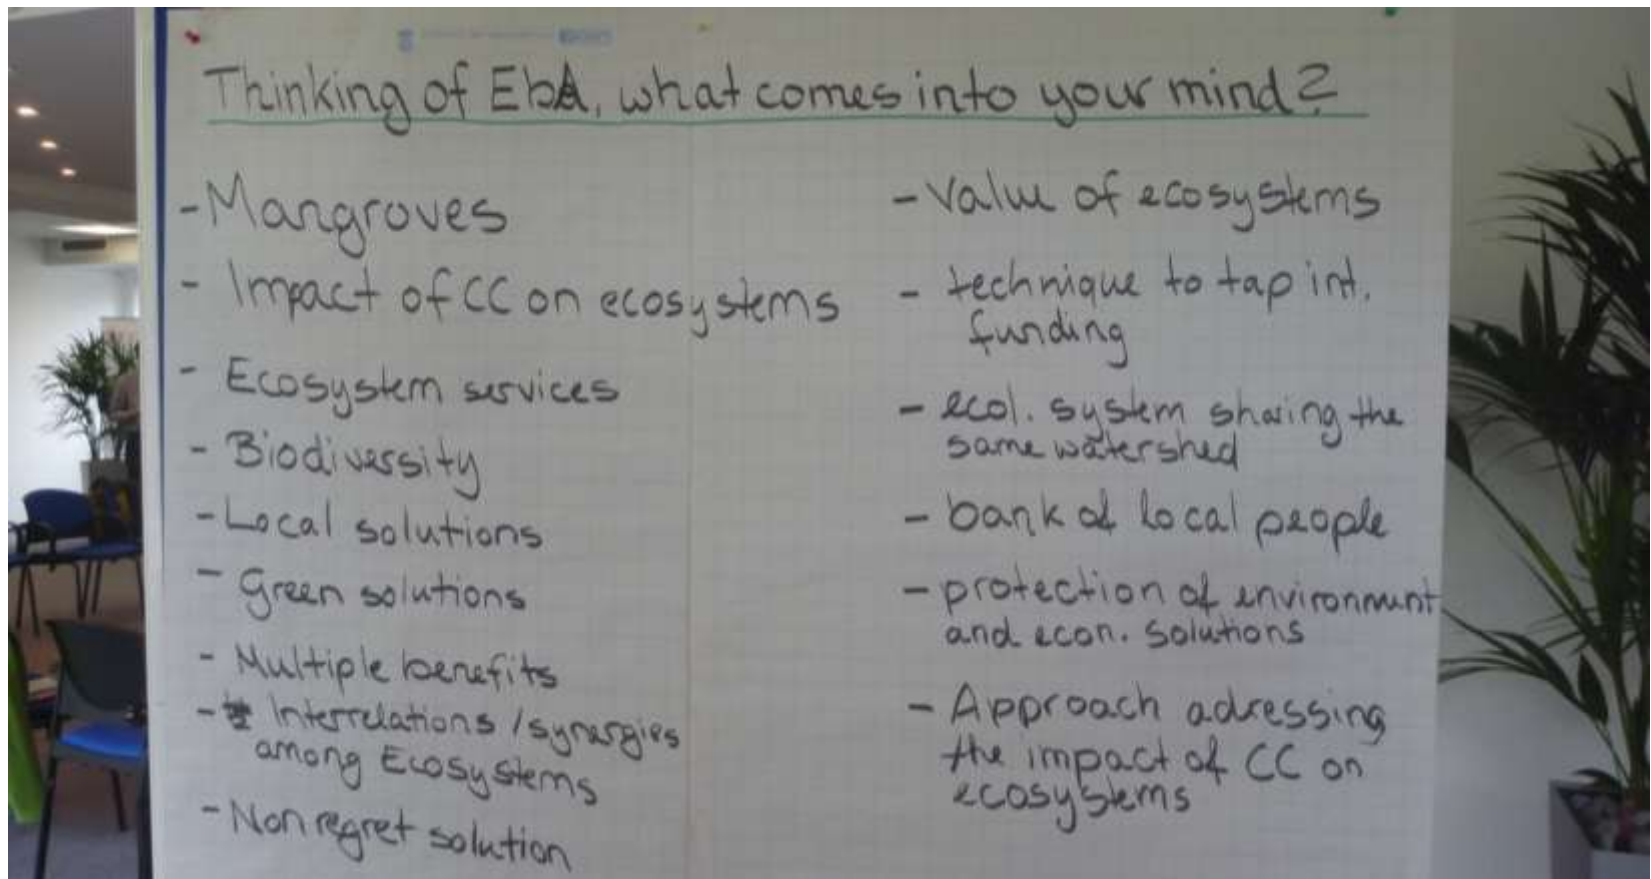 Thinking of EbA, what comes into your mind?
- Mangroves
- Impact of CC on ecosystems
- Ecosystem services
- Biodiversity
- Local solutions
- Green solutions
- Multiple benefits
- Interrelations / synergies
among Ecosystems
- Non regret solution
- Value of ecosystems
- technique to tap int.
funding
- ecol. system sharing the
same watershed
- bank of local people
- protection of environment
and econ. solutions
- Approach adressing
the impact of CC on
ecosystems